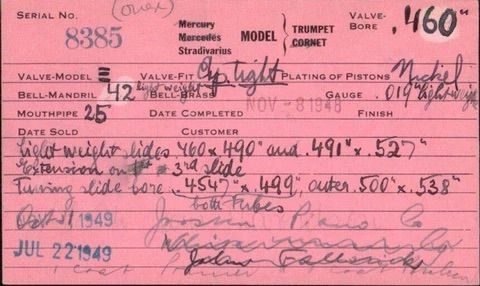 (over)
SERIAL NO. 8385
Mercury
Mercedes
Stradivarius
MODEL { TRUMPET CORNET
VALVE-BORE .460"
VALVE-MODEL VALVE-FIT Up tight PLATING OF PISTONS Nickel
BELL-MANDRIL 42 light weight BELL-BRASS GAUGE .019" light weight
MOUTHPIPE 25 DATE COMPLETED NOV - 8 1948 FINISH
DATE SOLD CUSTOMER
Light weight slides .460 x .490" and .491" x .527"
Extension on 3rd slide
Tuning slide bore .4547" x .499", outer .500" x .538"
both tubes
Oct 31 1949 Piano Co
JUL 22 1949
1 Coat